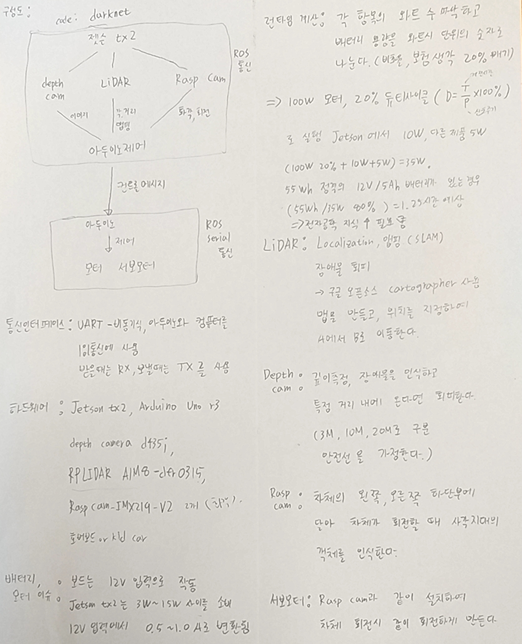 구성도:
code: darknet
젯슨 tx2
ROS
통신
depth
cam
LiDAR
Rasp cam
이미지
맵핑
아두이노제어
컨트롤메시지
아두이노
제어
모터 서보모터
ROS
serial
통신
통신인터페이스: UART - 비동기식, 아두이노와 컴퓨터를
사용
받을때는 RX, 보낼때는 TX를 사용
하드웨어 : Jetson tx2, Arduino Uno r3
depth camera d435i,
RPLIDAR A1M8
Rasp cam-IMX219-V2 2개
로버보드 or
배터리,
모터 이슈 : 보드는 12V 입력으로 작동
Jetson tx2는 3W~15W 사이를 소비
12V 입력에서 0.5~1.0A로 변환됨
런타임 계산: 각 항목의 와트 수 파악하고
배터리 용량을 와트시 단위의 숫자로
나눈다. (비효율, 보험 생각 20% 빼기)
=> 100W 모터, 20% 듀티사이클 (D = T/P x100%)
로 실험 Jetson에서 10W, 다른 제품 5W
(100W 20% + 10W + 5W) = 35W.
55Wh 정격의 12V/5Ah 배터리가 있는 경우
(55Wh/35W 80%) = 1.25시간 예상
=> 전자공학 지식 필요
LiDAR: Localization, 맵핑 (SLAM)
장애물 회피
→ 구글 오픈소스 cartographer 사용
맵을 만들고, 위치를 지정하여
A에서 B로 이동한다
Depth
cam : 깊이측정, 장애물을 인식하고
특정 거리 내에 온다면 회피한다.
(3M, 10M, 20M로 구분
안전선을 가정한다.)
Rasp
cam : 차체의 왼쪽, 오른쪽 하단부에
달아 차체가 회전할 때 사각지대의
객체를 인식한다.
서보모터: Rasp cam과 같이 설치하여
차체 회전시 같이 회전하게 만든다